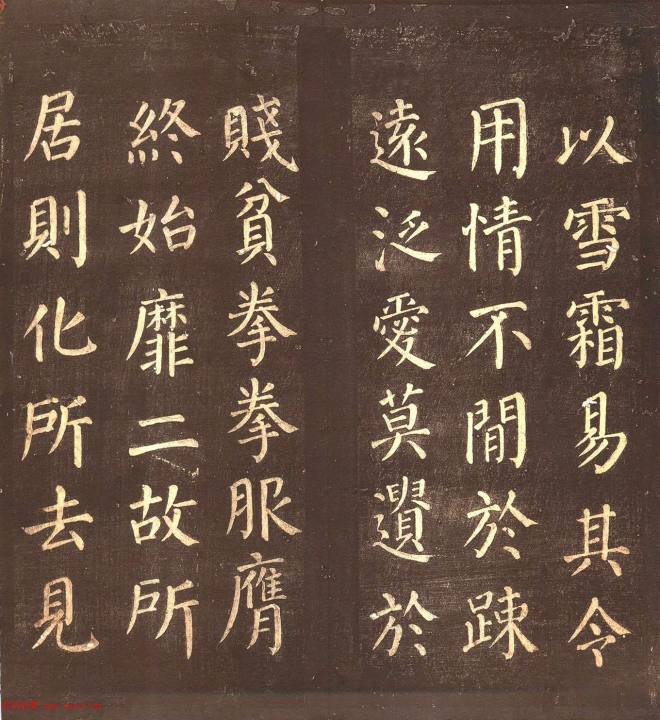 以雪霜易其令
用情不間於踈
遠泛愛莫遺於
賤貧拳拳服膺
終始靡二故所
居則化所去見